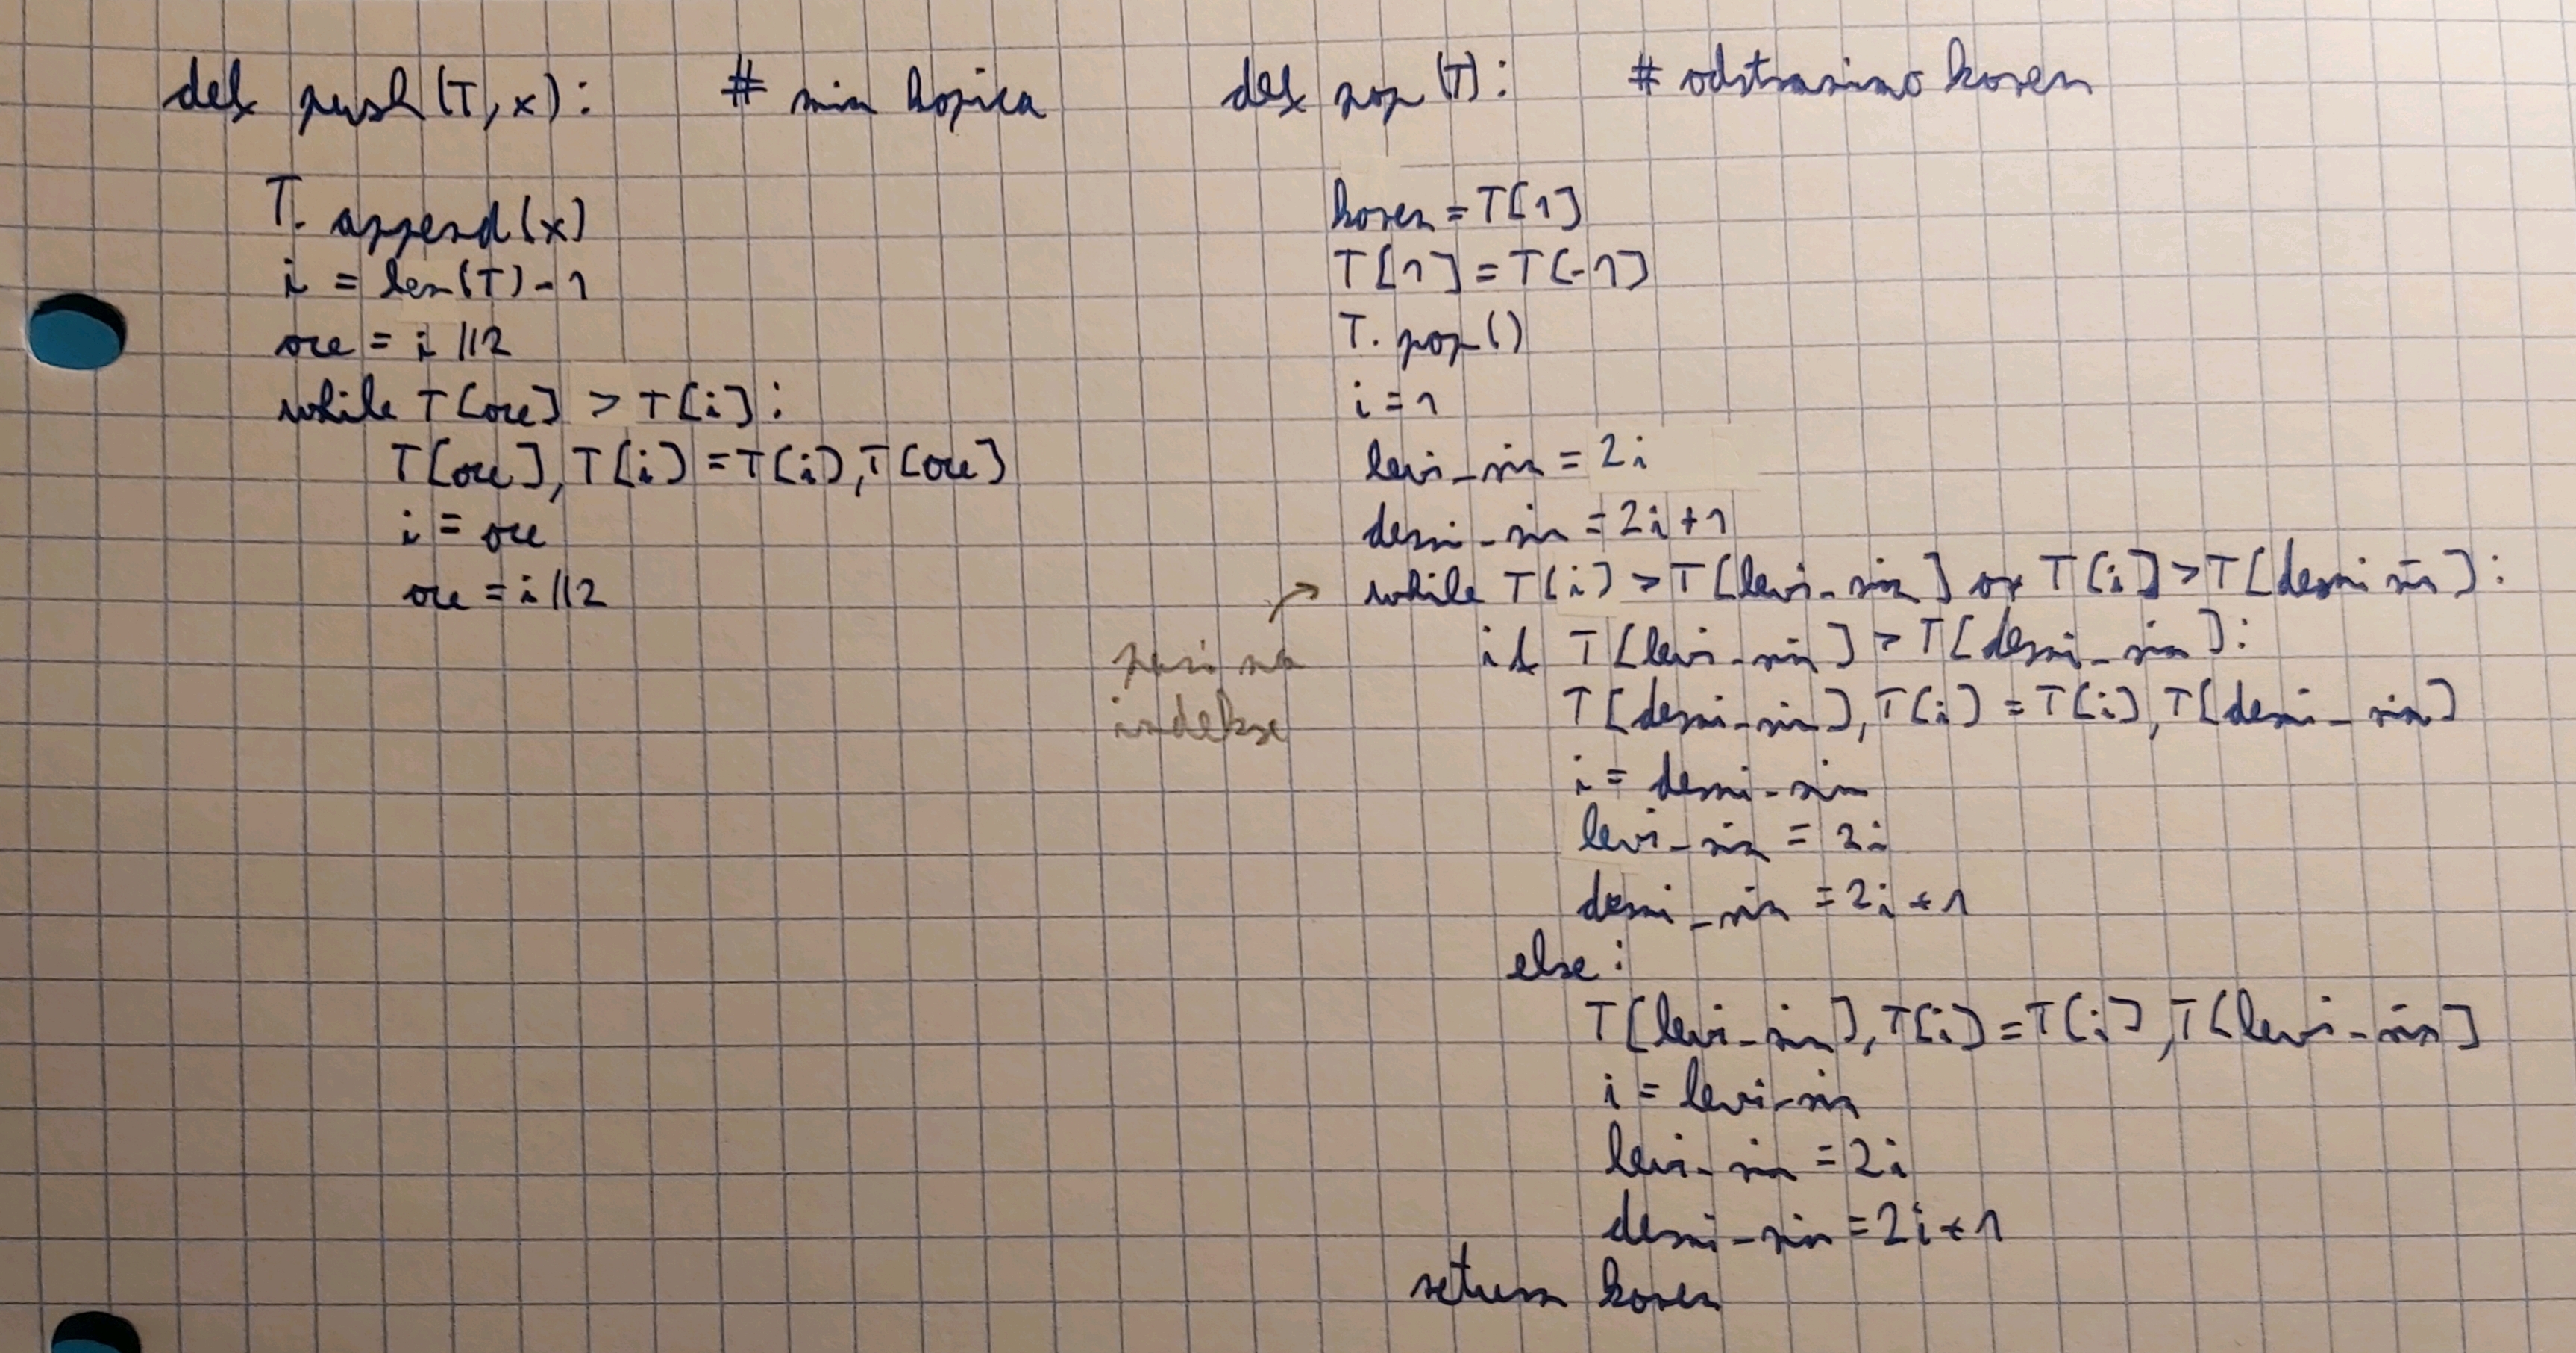 def push(T, x): # min kopica
T.append(x)
i = len(T)-1
oce = i//2
while T[oce] > T[i]:
T[oce], T[i] = T[i], T[oce]
i = oce
oce = i//2
def pop(T): # odstranimo koren
koren = T[1]
T[1] = T[-1]
T.pop()
i = 1
levi_sin = 2i
desni_sin = 2i+1
while T[i] > T[levi_sin] or T[i] > T[desni sin]:
pazi na
indekse
if T[levi_sin] > T[desni_sin]:
T[desni_sin], T[i] = T[i], T[desni_sin]
i = desni_sin
levi_sin = 2i
desni_sin = 2i+1
else:
T[levi_sin], T[i] = T[i], T[levi_sin]
i = levi_sin
levi_sin = 2i
desni_sin = 2i+1
return koren